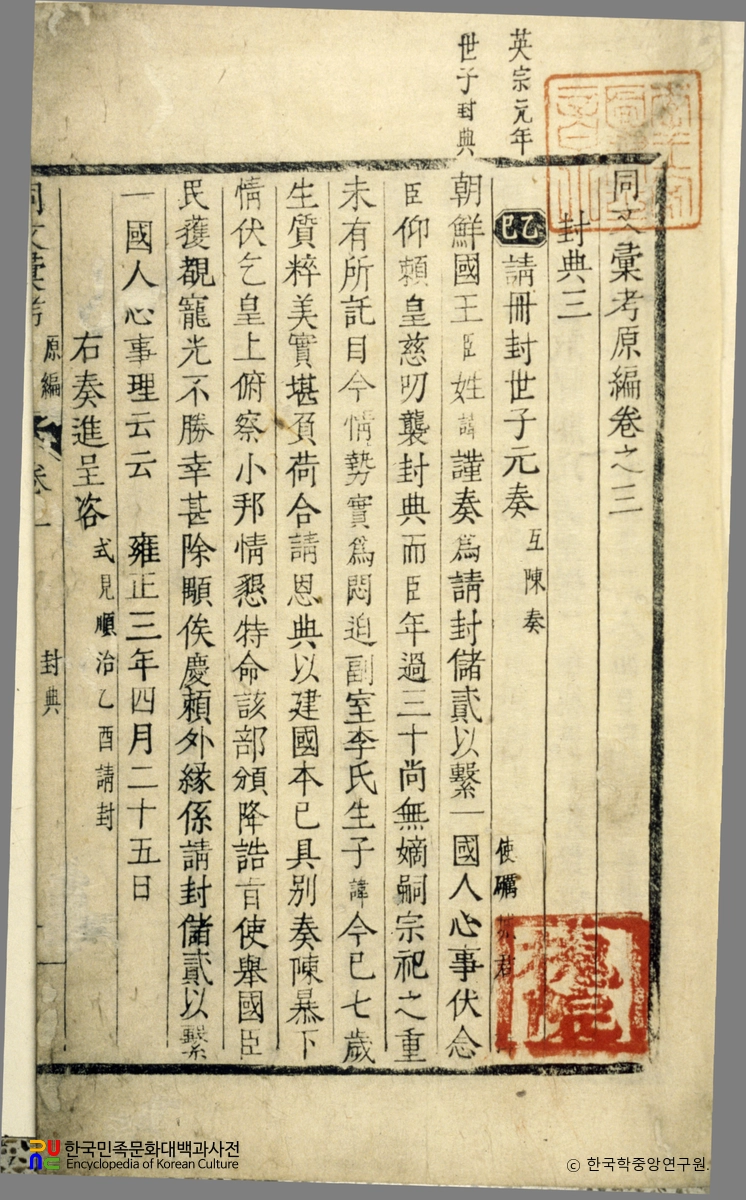 同文彙考原編卷之三
封典三
英宗元年
世子封典
乙巳 請冊封世子元奏 互陳奏 使礪 君
朝鮮國王臣姓諱謹奏爲請封儲貳以繫一國人心事伏念
臣仰賴皇慈叨襲封典而臣年過三十尚無嫡嗣宗祀之重
未有所託目今情勢實爲悶迫副室李氏生子諱今已七歲
生質粹美實堪負荷合請恩典以建國本已具別奏陳暴下
情伏乞皇上俯察小邦情懇特命該部頒降誥旨使舉國臣
民獲覩寵光不勝幸甚除顒俟慶賴外緣係請封儲貳以繫
一國人心事理云云 雍正三年四月二十五日
右奏進呈咨 式見順治乙酉請封
同文彙考 原編 卷 封典
한국민족문화대백과사전
Encyclopedia of Korean Culture
© 한국학중앙연구원.